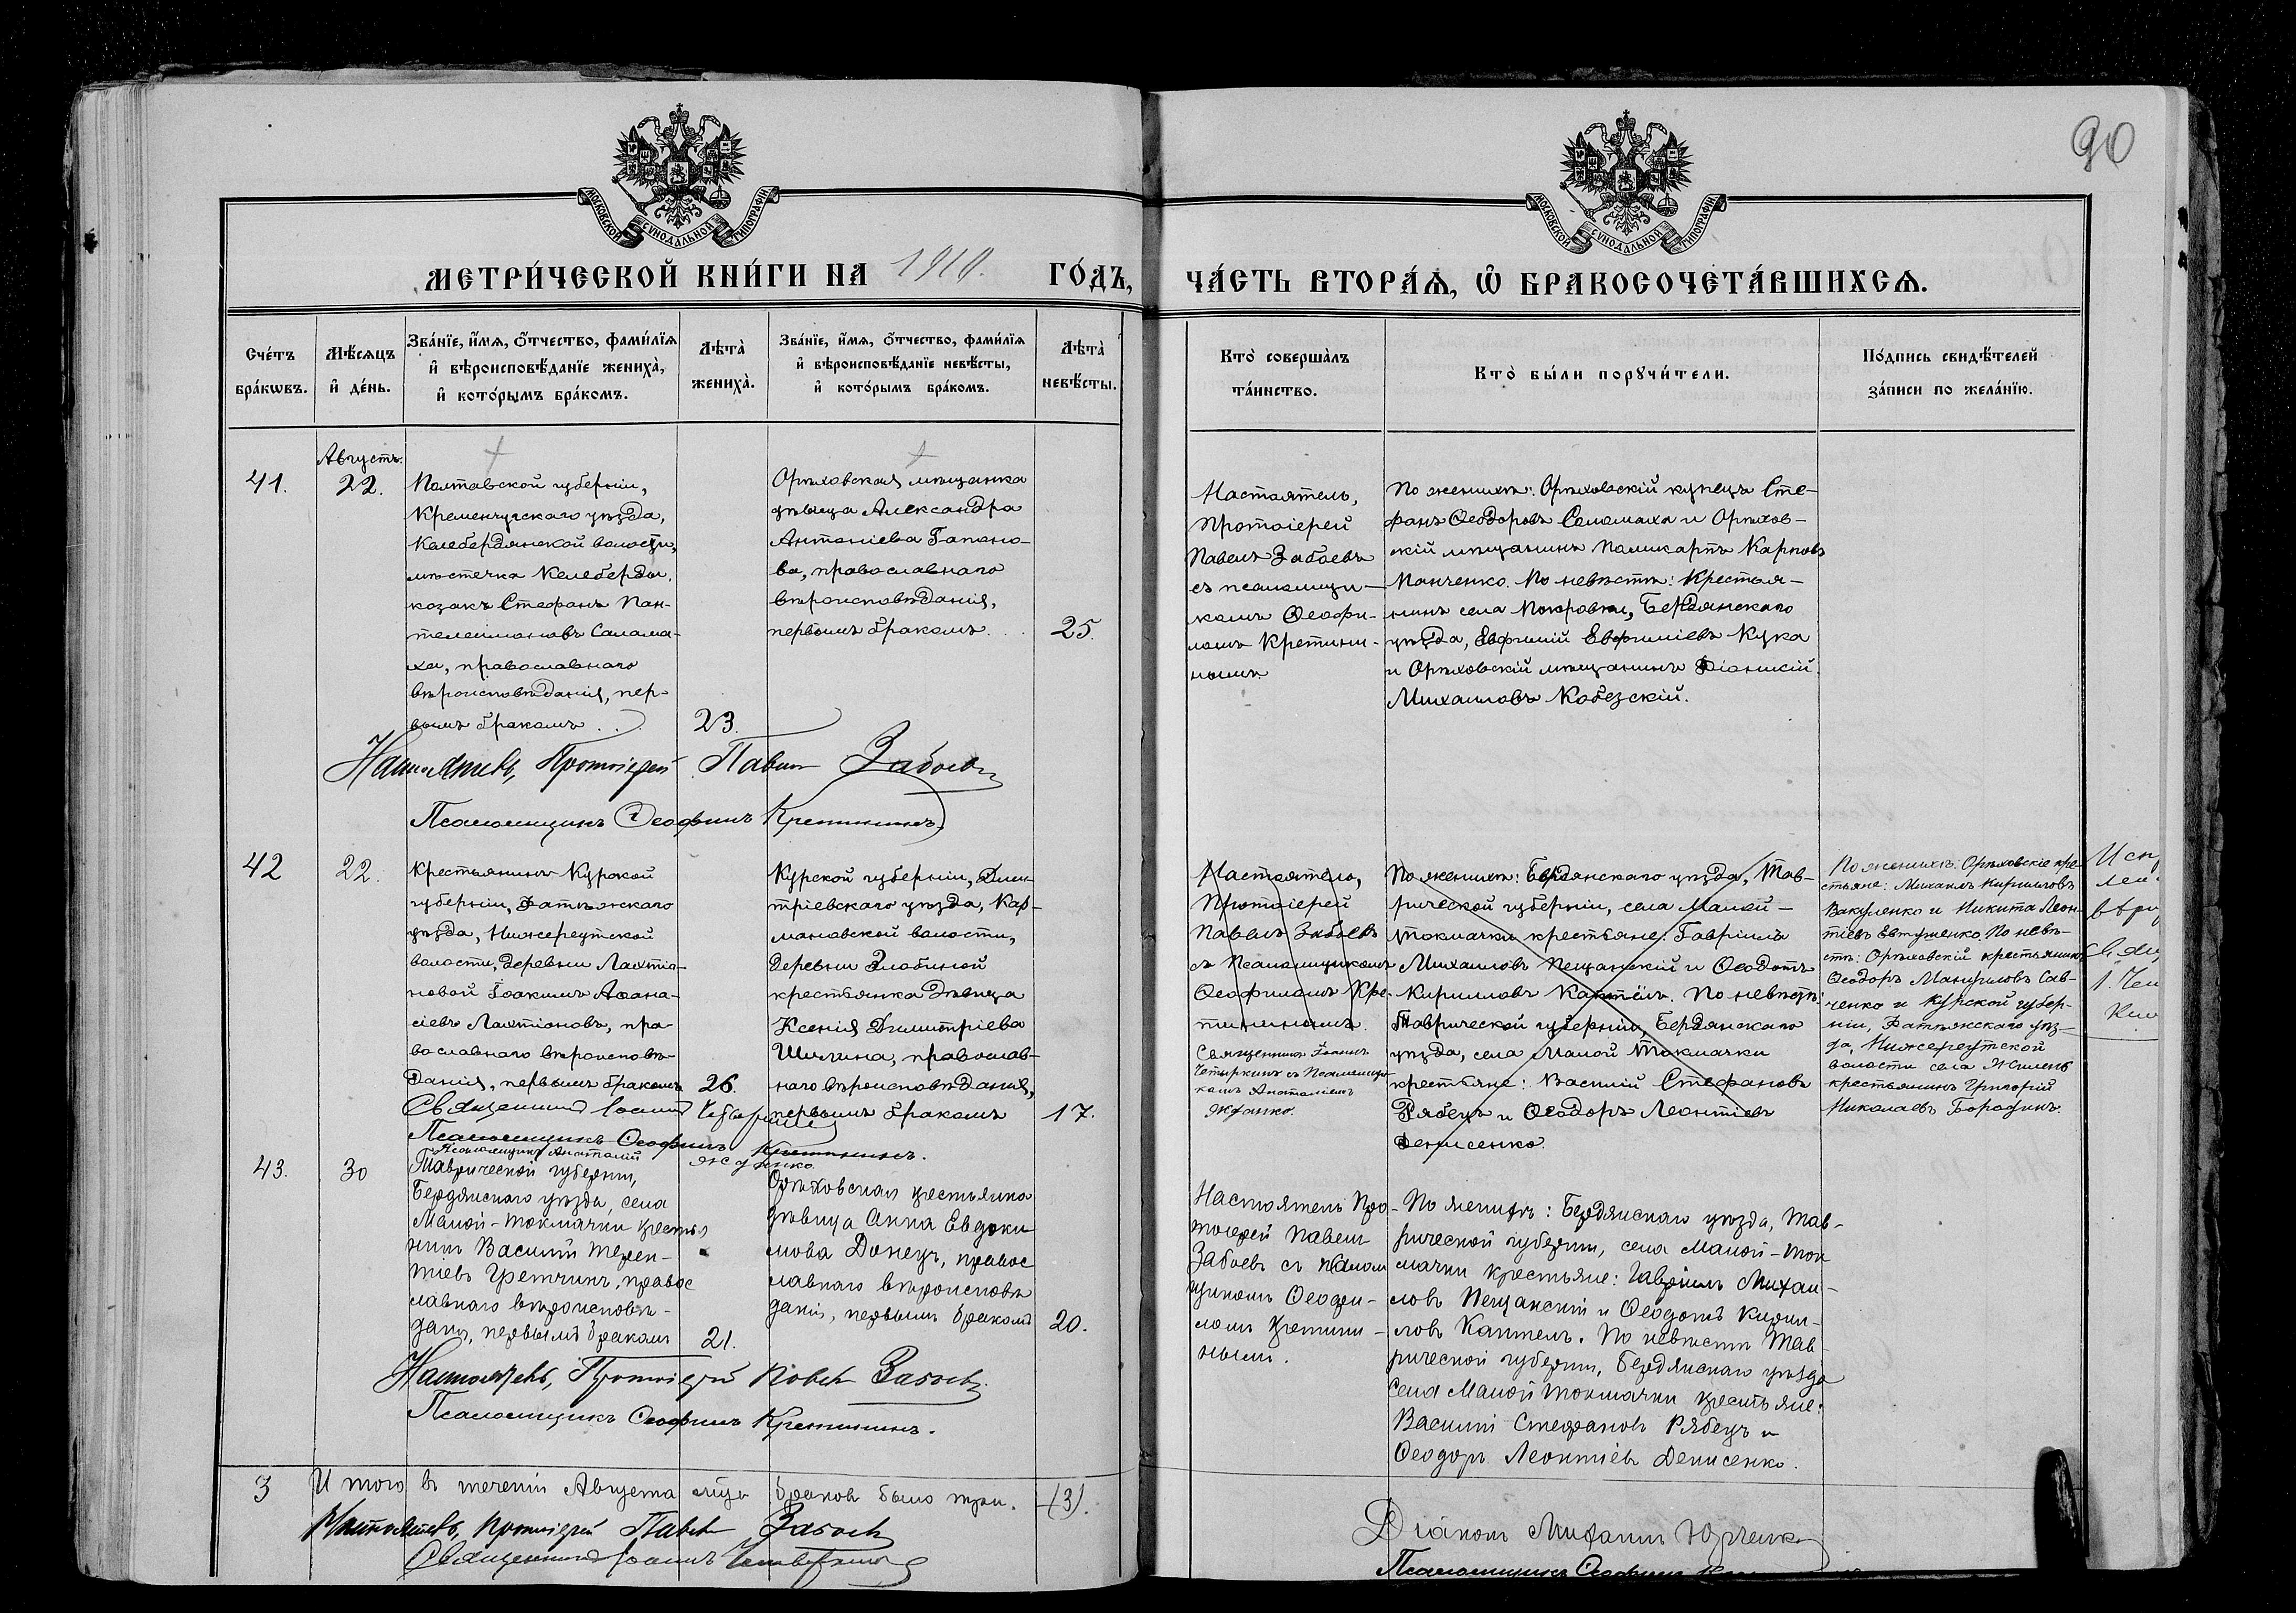 90
МОСКОВСКОЙ СѴНОДАЛЬНОЙ ТИПОГРАФІИ
МОСКОВСКОЙ СѴНОДАЛЬНОЙ ТИПОГРАФІИ
МЕТРИ́ЧЕСКОЙ КНИ́ГИ НА 1910. ГО́ДЪ,
ЧА́СТЬ ВТОРА́Ѧ, Ѡ҆ БРАКОСОЧЕТА́ВШИХСѦ.
Сче́тъ
бра́кѡвъ.
Мѣ́сяцъ
и҆ де́нь.
Зва́нїе, и҆́мя, ѻ҆́тчество, фами́лїя
и҆ вѣроисповѣ́данїе жениха̀,
и҆ кото́рымъ бра́комъ.
Лѣта̀
жениха̀.
Зва́нїе, и҆́мя, ѻ҆́тчество, фами́лїя
и҆ вѣроисповѣ́данїе невѣ́сты,
и҆ кото́рымъ бра́комъ.
Лѣта̀
невѣ́сты.
Кто̀ соверша̀лъ
та́инство.
Кто̀ бы́ли порꙋчи́тели.
По́дпись свидѣ́телей
за́писи по жела́нїю.
41.
Августъ.
22.
Полтавской губерніи,
Кременчугскаго уѣзда,
Келебердянской волости,
мѣстечка Келеберды,
козакъ Стефанъ Пан-
телеимоновъ Салама-
ха, православнаго
вѣроисповѣданія, пер-
вымъ бракомъ . . .
23.
Орѣховская мѣщанка
дѣвица Александра
Антоніева Гапоно-
ва, православнаго
вѣроисповѣданія,
первымъ бракомъ . .
25.
Настоятель,
Протоіерей
Павелъ Забоевъ
съ псаломщи-
комъ Ѳеофи-
ломъ Кретини-
нымъ
По женихѣ: Орѣховскій купецъ Сте-
фанъ Ѳеодоровъ Саламаха и Орѣхов-
скій мѣщанинъ Поликарпъ Карповъ
Панченко. По невѣстѣ: Крестья-
нинъ села Покровки, Бердянскаго
уѣзда, Евфимій Евфиміевъ Кука
и Орѣховскій мѣщанинъ Діонисій
Михаиловъ Кобезскій.
Настоятель, Протоіерей Павелъ Забоевъ
Псаломщикъ Ѳеофилъ Кретининъ
42
22.
Крестьянинъ Курской
губерніи, Фатѣжскаго
уѣзда, Нижереутской
волости, деревни Лахтіо-
новой Іоакимъ Аѳана-
сіевъ Лахтіоновъ, пра-
вославнаго вѣроисповѣ-
данія, первымъ бракомъ
26.
Курской губерніи, Дми-
тріевскаго уѣзда, Кар-
мановской волости,
деревни Злобиной
крестьянка дѣвица
Ксенія Димитріева
Шилина, православ-
наго вѣроисповѣданія,
первымъ бракомъ
17.
Настоятель,
Протоіерей
Павелъ Забоевъ
съ Псаломщикомъ
Ѳеофиломъ Кре-
тининымъ.
Священникъ Іоаннъ
съ Псаломщи-
комъ Анатоліемъ
Жданко.
По женихѣ: Бердянскаго уѣзда, Тав-
рической губерніи, села Малой-
Токмачки крестьяне: Гавріилъ
Михаиловъ Пещанскій и Ѳеодотъ
Кирилловъ Каптёлъ. По невѣстѣ:
Таврической губерніи, Бердянскаго
уѣзда, села Малой Токмачки
крестьяне: Василій Стефановъ
Рябецъ и Ѳеодоръ Леонтіевъ
Денисенко.
По женихѣ: Орѣховскіе кре-
стьяне: Михаилъ Кирилловъ
Вакуленко и Никита Леон-
тіевъ Евтушенко. По невѣ-
стѣ: Орѣховскій крестьянинъ
Ѳеодоръ Сав-
ченко и Курской губер-
ніи, Фатѣжскаго уѣз-
да, Нижереутской
волости села Жилень
крестьянинъ Григорій
Николаевъ Бородинъ.
Священникъ Іоаннъ
Псаломщикъ Ѳеофилъ Кретининъ.
Псаломщикъ Анатолій Жданко.
43.
30
Таврической губерніи,
Бердянскаго уѣзда, села
Малой-Токмачки крестья
нинъ Василій Терен-
тіевъ Гретчинъ, правос
лавнаго вѣроисповѣ-
данія, первымъ бракомъ
21.
Орѣховская крестьянка
дѣвица Анна Евдоки
мова Донецъ, правос
лавнаго вѣроисповѣ
данія, первымъ бракомъ
20.
Настоятель Про-
тоіерей Павелъ
Забоевъ съ псалом
щикомъ Ѳеофи-
ломъ Кретини-
нымъ.
По женихѣ: Бердянскаго уѣзда, Тав-
рической губерніи, села Малой-Ток
мачки крестьяне: Гавріилъ Михаи-
ловъ Пещанскій и Ѳеодотъ Кирил-
ловъ Каптелъ. По невѣстѣ Тав
рической губерніи, Бердянскаго уѣзда
села Малой Токмачки крестьяне:
Василій Стефановъ Рябецъ и
Ѳеодоръ Леонтіевъ Денисенко.
Настоятель, Протоіерей Павелъ Забоевъ
Псаломщикъ Ѳеофилъ Кретининъ.
3
Итого въ теченіи Августа мѣсца браковъ было три. (3).
Настоятель, Протоіерей Павелъ Забоевъ
Священникъ Іоаннъ
Діаконъ Михаилъ Юрченко
Псаломщикъ Ѳеофилъ